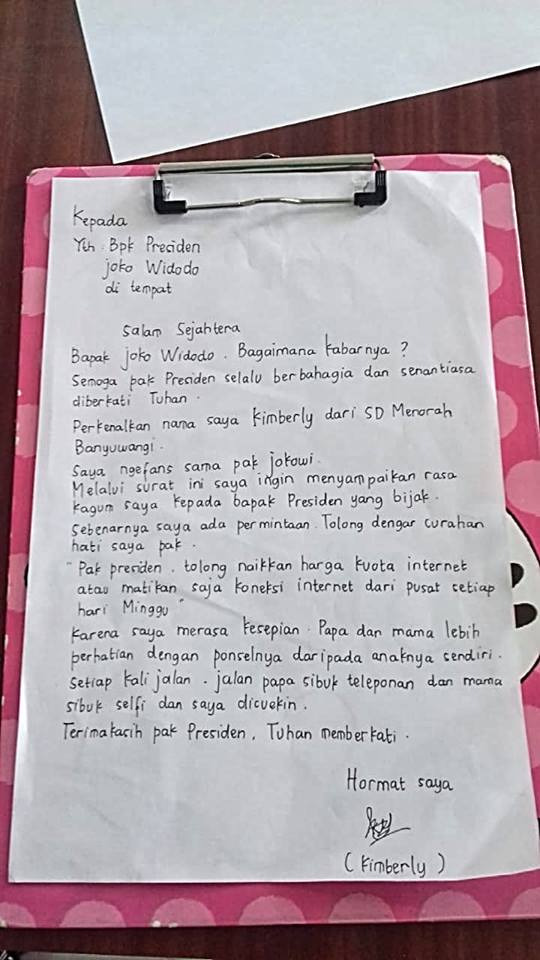 Kepada
Yth. Bpk Presiden
joko Widodo
di tempat
Salam Sejahtera
Bapak joko Widodo. Bagaimana kabarnya ?
Semoga pak Presiden selalu berbahagia dan senantiasa
diberkati Tuhan.
Perkenalkan nama saya Kimberly dari SD Menorah
Banyuwangi.
Saya ngefans sama pak jokowi.
Melalui surat ini saya ingin menyampaikan rasa
kagum saya kepada bapak Presiden yang bijak.
Sebenarnya saya ada permintaan. Tolong dengar curahan
hati saya pak.
"Pak presiden, tolong naikkan harga kuota internet
atau matikan saja koneksi internet dari pusat setiap
hari Minggu"
Karena saya merasa kesepian. Papa dan mama lebih
perhatian dengan ponselnya daripada anaknya sendiri.
Setiap kali jalan - jalan papa sibuk teleponan dan mama
sibuk selfi dan saya dicuekin.
Terimakasih pak Presiden, Tuhan memberkati.
Hormat saya
(Kimberly)